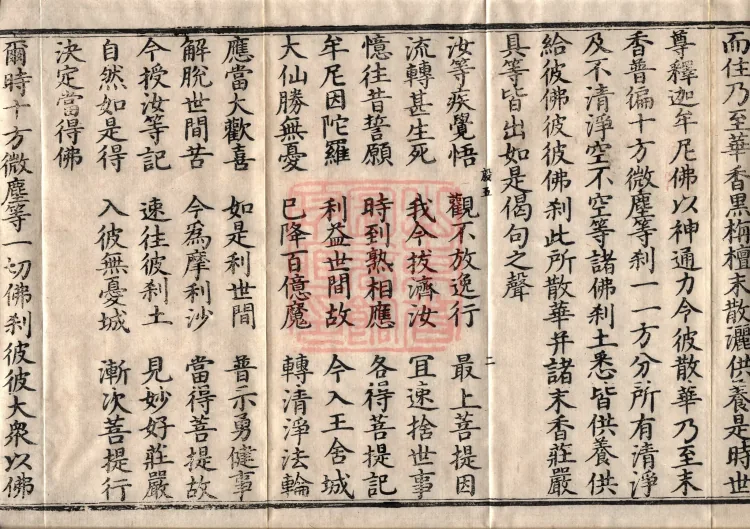 而住乃至華香黒栴檀末散灑供養是時世
尊釋迦牟尼佛以神通力令彼散華乃至末
香普徧十方微塵等刹一一方分所有清淨
及不清淨空不空等諸佛刹土悉皆供養供
給彼佛彼彼佛刹此所散華并諸末香莊嚴
具等皆出如是偈句之聲
毅五
二
汝等疾覺悟 觀不放逸行 最上菩提因
流轉甚生死 我今拔濟汝 宜速捨世事
憶往昔誓願 時到熟相應 各得菩提記
牟尼因陀羅 利益世間故 今入王舍城
大仙勝無憂 已降百億魔 轉清淨法輪
應當大歡喜 如是利世間 普示勇健事
解脫世間苦 今爲摩利沙 當得菩提故
今授汝等記 速往彼刹土 見妙好莊嚴
自然如是得 入彼無憂城 漸次菩提行
決定當得佛
爾時十方微塵等一切佛刹彼彼大衆以佛